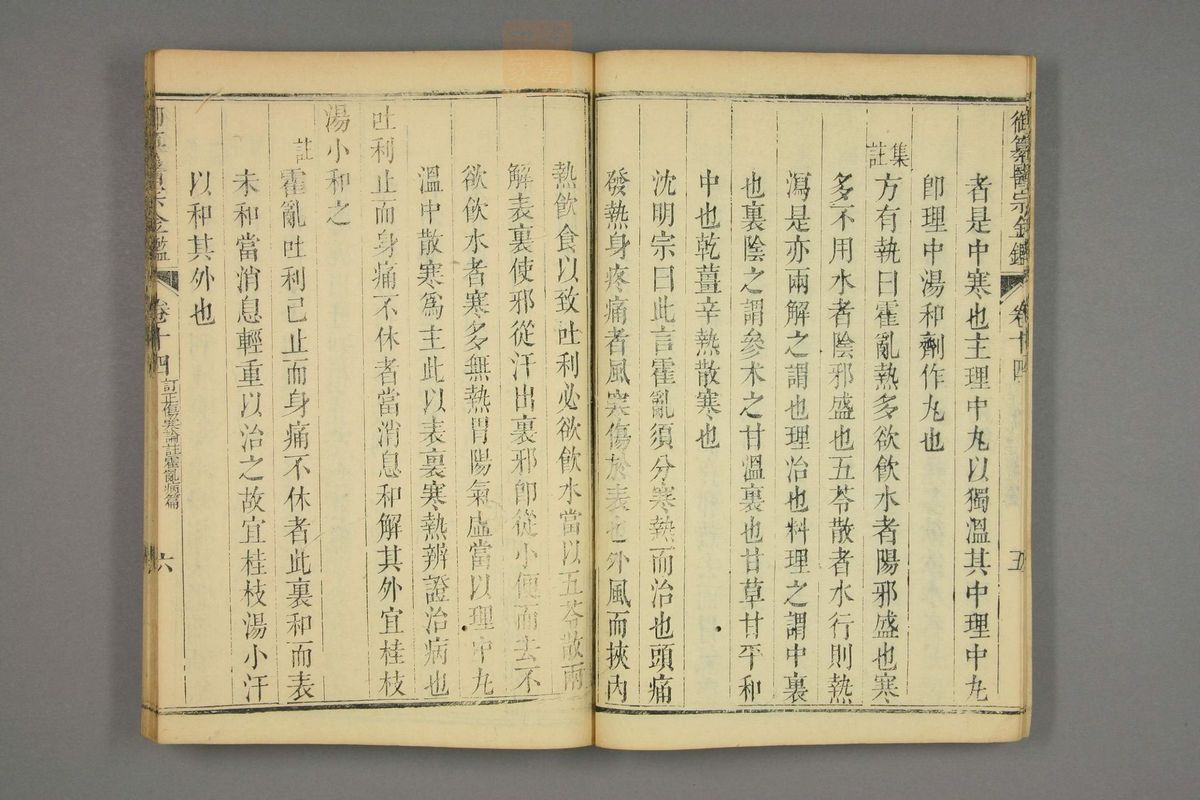 御纂醫宗金鑑 卷十四 五
者是中寒也主理中丸以獨溫其中理中丸
卽理中湯和劑作丸也
集註
方有執曰霍亂熱多欲飲水者陽邪盛也寒
多不用水者陰邪盛也五苓散者水行則熱
瀉是亦兩解之謂也理治也料理之謂中裏
也裏陰之謂參术之甘溫裏也甘草甘平和
中也乾薑辛熱散寒也
沈明宗曰此言霍亂須分寒熱而治也頭痛
發熱身疼痛者風寒傷於表也外風而挾內
熱飲食以致吐利必欲飲水當以五苓散兩
解表裏使邪從汗出裏邪卽從小便而去不
欲飲水者寒多無熱胃陽氣虛當以理中丸
溫中散寒爲主此以表裏寒熱辨證治病也
吐利止而身痛不休者當消息和解其外宜桂枝
湯小和之
註
霍亂吐利已止而身痛不休者此裏和而表
未和當消息輕重以治之故宜桂枝湯小汗
以和其外也
宗金鑑 卷十四 訂正傷寒論註霍亂病篇 六